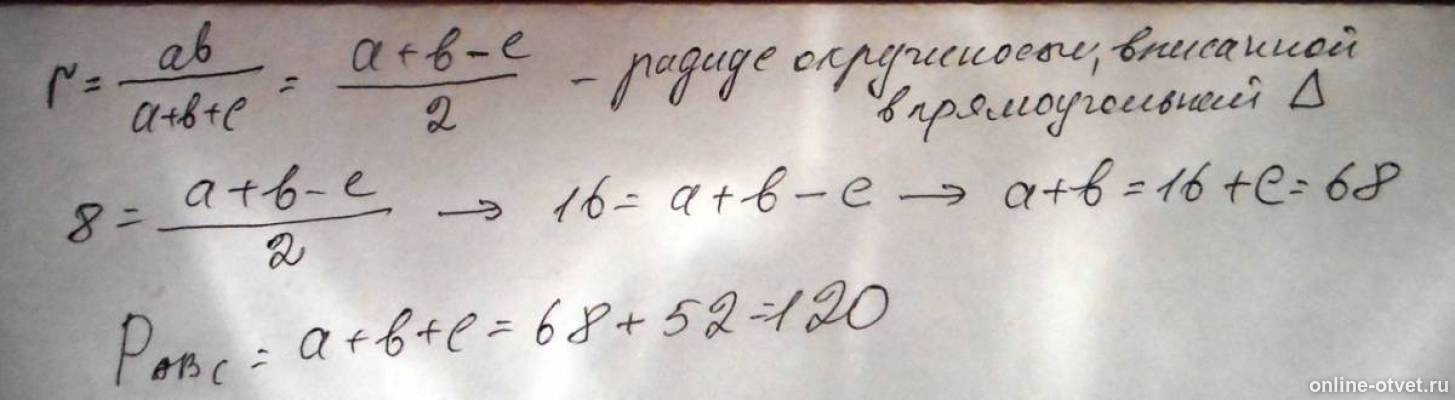 r = ab/(a+b+c) = (a+b−c)/2 – радиус окружности, вписанной
в прямоугольный Δ
8 = (a+b−c)/2 → 16 = a+b−c → a+b = 16+c = 68
P_ABC = a+b+c = 68+52=120
online-otvet.ru